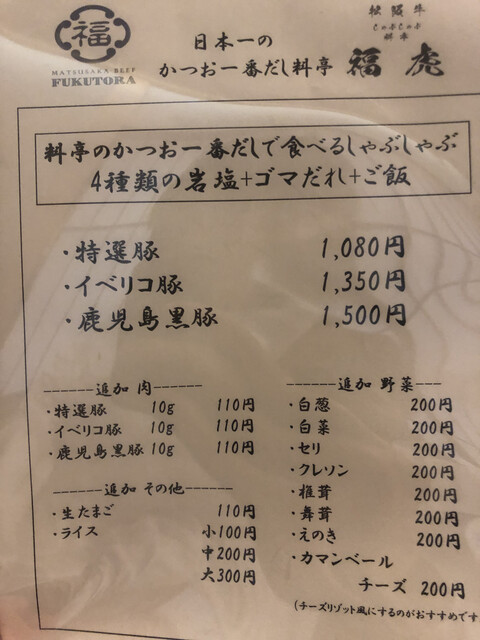 福
MATSUSAKA BEEF
FUKUTORA
日本一の
かつお一番だし料亭
松阪牛
しゃぶしゃぶ
福虎
料亭のかつお一番だしで食べるしゃぶしゃぶ
4種類の岩塩+ゴマだれ+ご飯
・特選豚 1,080円
・イベリコ豚 1,350円
・鹿児島黒豚 1,500円
------追加 肉------
・特選豚 10g 110円
・イベリコ豚 10g 110円
・鹿児島黒豚 10g 110円
------追加 その他------
・生たまご 110円
・ライス 小100円
中200円
大300円
------追加 野菜---
・白葱 200円
・白菜 200円
・セリ 200円
・クレソン 200円
・椎茸 200円
・舞茸 200円
・えのき 200円
・カマンベール
チーズ 200円
(チーズリゾット風にするのがおすすめです